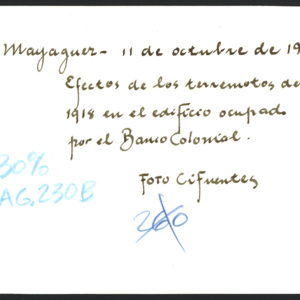 Mayaguez - 11 de octubre de 19
Efectos de los terremotos de
1918 en el edificio ocupad
por el Banco Colonial.
Foto Cifuentes
30%
AG. 230B
260